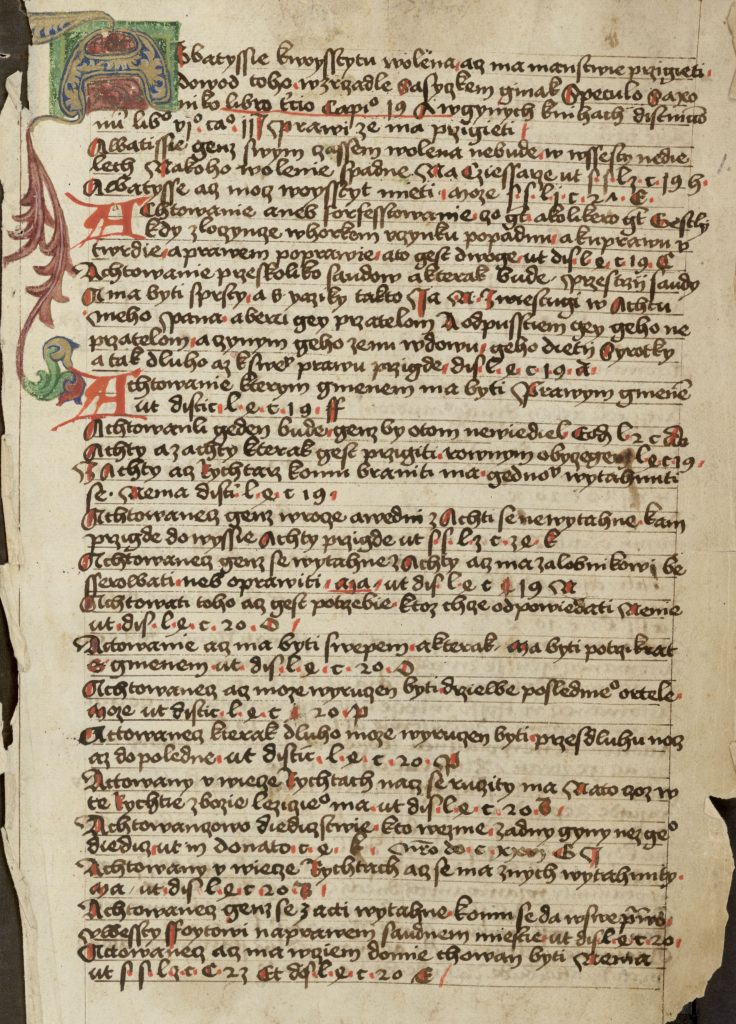 Abatyssie kwysscytu wolena az ma manstwie przigieti
dowod toho wzrzadle Sasyczkem ginak Speculo Saxo
niko libro tercio Capio 19 A wgynych knihach
nu libo vjo cao iij Sprawi ze ma przigieti
Abatissie genz swym czassem wolena nebude w ssesty nedie
lech Na koho wolenie spadne Na Cziessarze ut s s l 2 c 19 h
Abatysse az moz woysscyt mieti moze s s l j c 21 E
Achtowanie aneb forfesstowanie czo gt a kolikero gt Gestly
kdy zloczyncze whorkem uczynku popadnu a kuprawu v
twrdie a prawem poprawie ato gest dwoge ut dis l e c 19 C
Achtowanie przes koliko saudow a kterak bude Sprestrzij saudy
A ma byti sprscy a s yaziky takto Ja N zwiestugi w Achtu
meho pana a berzi gey przatelom A odpusstiem gey geho ne
przatelom a czynym geho zenu wdowu geho dieti Syrotky
a tak dluho az kswe prawu przigde dis l e c 19 a
Achtowanie kterym gmenem ma byti Prawym gmene
ut distic l e c 19 ff
Achtowanli geden bude genz by o tom newiediel l 2 c
Achty a z achty kterak gest przigiti rownym obyczegem l e c 19
Z Achty az Rychtarz komu braniti ma gednov wytahnuti
se Nema disti l e c 19
Achtowanecz genz wrocze awedni z Achti se newytahne kam
przigde do wyssie Achty przigde ut s s l 2 c 2e k
Achtowanecz genz se wytahne z Achty az ma zalobnikowi be
sserolbati neb oprawiti aza ut dis l e c 19 N
Achtowati toho az gest potrzebie ktoz chze odpowiedati Nenie
ut dis l e c 20 O
Actowanie az ma byti swepem a kterak Ma byti potrzikrat
S gmenem ut dis l e c 20 O
Achtowanecz az moze wyruczen byti dzielbe posledmeo ortele
moze ut distic l e c 20 P
Actowanecz kterak dluho moze wyruczen byti przes dluhu nocz
az do poledne ut distic l e c 20
Actowany v wiecze Rychtach nacz se ruczity ma Nato czoz w
te Rychtie zbozie lezicieo ma ut dis l e c 20 S
Achtowanczowo diediczstwie kto wezme zadny gyny nez geo
diedicz ut in donato c e k
Achtowany v wiecze Rychtach az se ma z nych wytahnuty
Ma ut dis l e c 20
Achtowanecz genz se z acti wytahne komu se da w swe
v wessty ffoytowi na prawem saudnem miestie ut dis l e c 20
Actowanecz az ma wcziem domie chowan byti Nema
ut s s l 2 c C 23 Et dis l e c 20 E